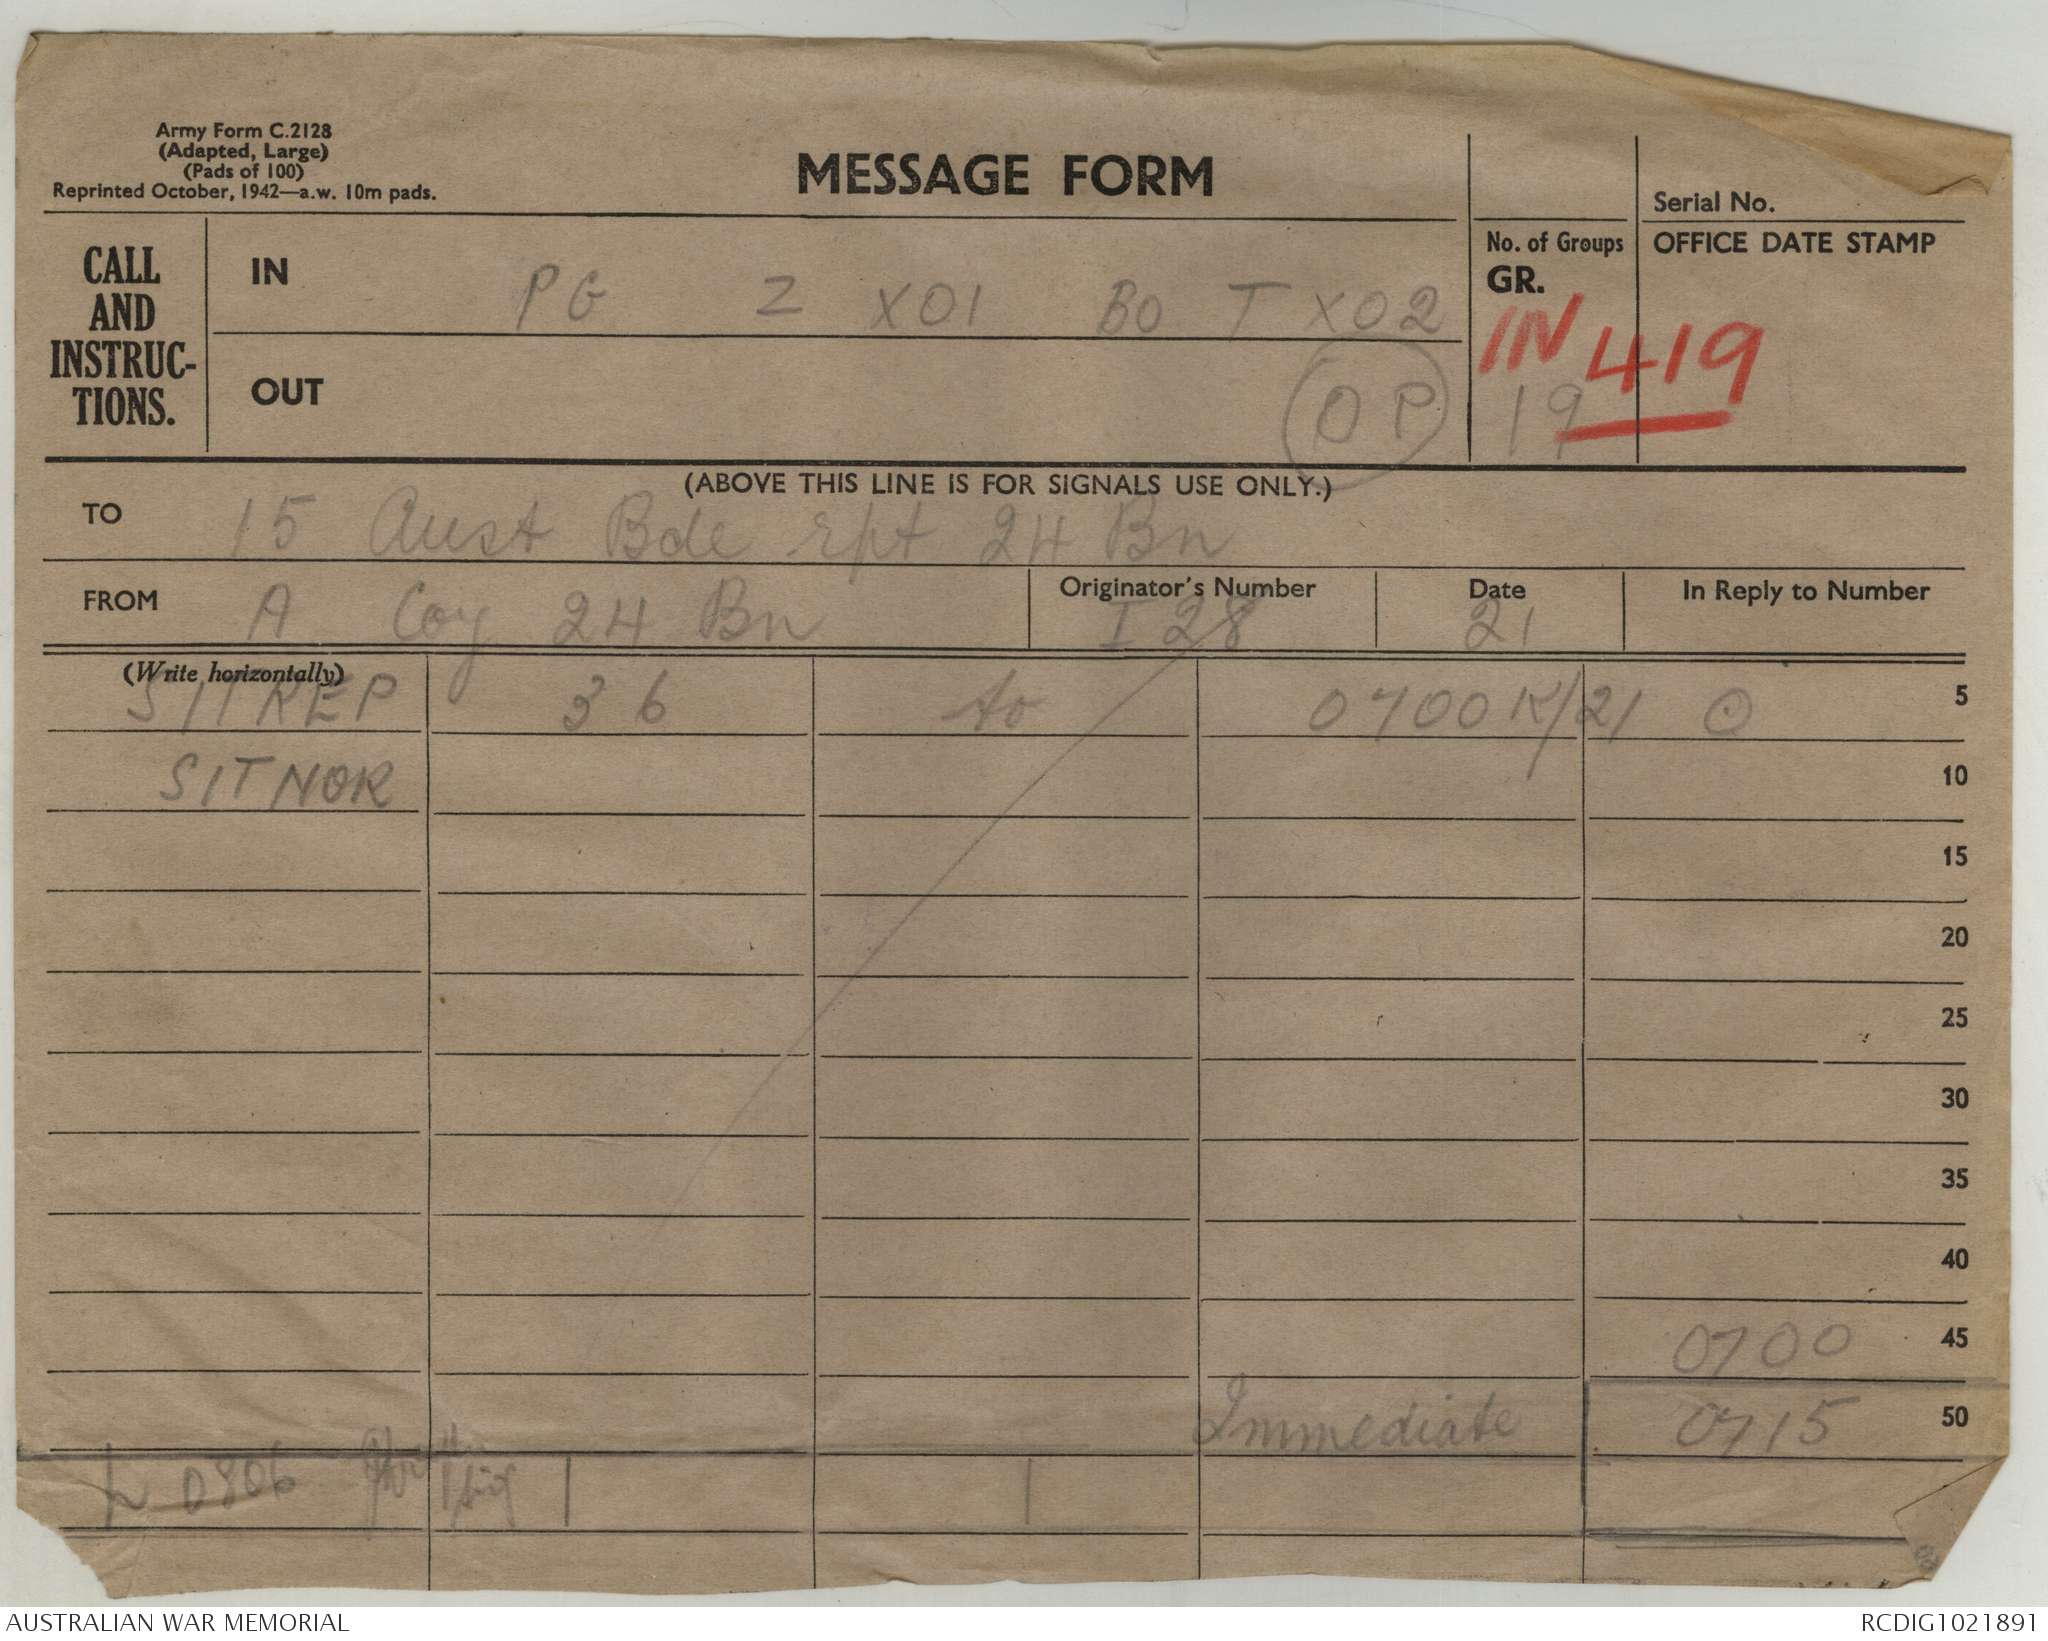 Army Form C.2128
(Adapted, Large)
(Pads of 100)
Reprinted October, 1942—a.w. 10m pads.
MESSAGE FORM
Serial No.
CALL
AND
INSTRUC-
TIONS.
IN PG Z X01 BO T X02
OUT OP
No. of Groups
GR.
19
OFFICE DATE STAMP
IN 419
(ABOVE THIS LINE IS FOR SIGNALS USE ONLY.)
TO 15 Aust Bde rpt 24 Bn
FROM A Coy 24 Bn
Originator's Number I 28
Date 21
In Reply to Number
(Write horizontally)
SITREP 36 to 0700K/21 O 5
SITNOR 10
15
20
25
30
35
40
0700 45
Immediate 0715 50
0806
AUSTRALIAN WAR MEMORIAL RCDIG1021891